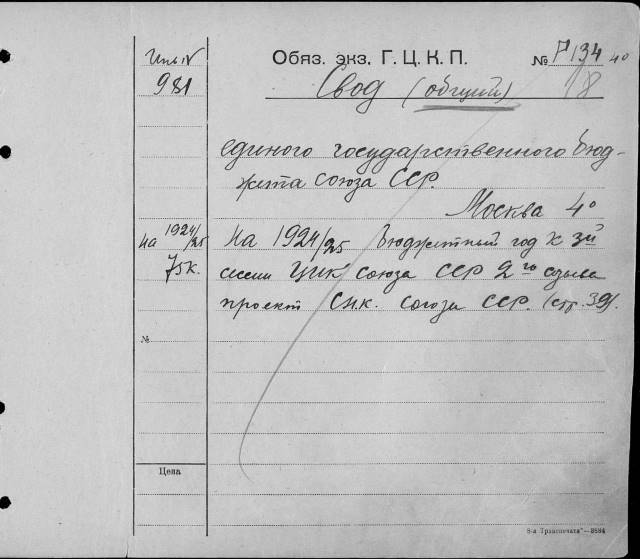 Инв. №
981
Обяз. экз. Г. Ц. К. П.
№ P/34 4°
18
Свод (общий)
единого государственного бюд-
жета союза ССР.
Москва 4°
на 1924/25
75к.
На 1924/25 бюджетный год к 3й
сессии ЦИК союза ССР 2го созыва
проект СНК. союза ССР. (стр. 39).
№
Цена
8-я Транспечать"—8684